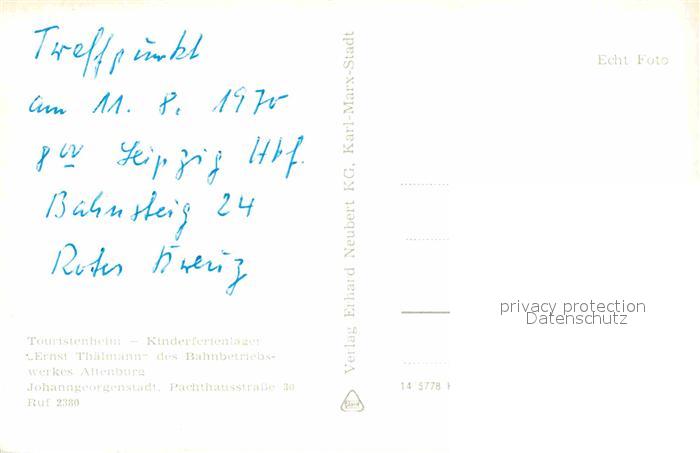 Treffpunkt
am 11. 8. 1970
8 00 Leipzig Hbf.
Bahnsteig 24
Rotes Kreuz
Touristenheim – Kinderferienlager
„Ernst Thälmann“ des Bahnbetriebs-
werkes Altenburg
Johanngeorgenstadt, Pachthausstraße 30
Ruf 2380
Verlag Erhard Neubert KG, Karl-Marx-Stadt
Echt Foto
privacy protection
Datenschutz
14 5778